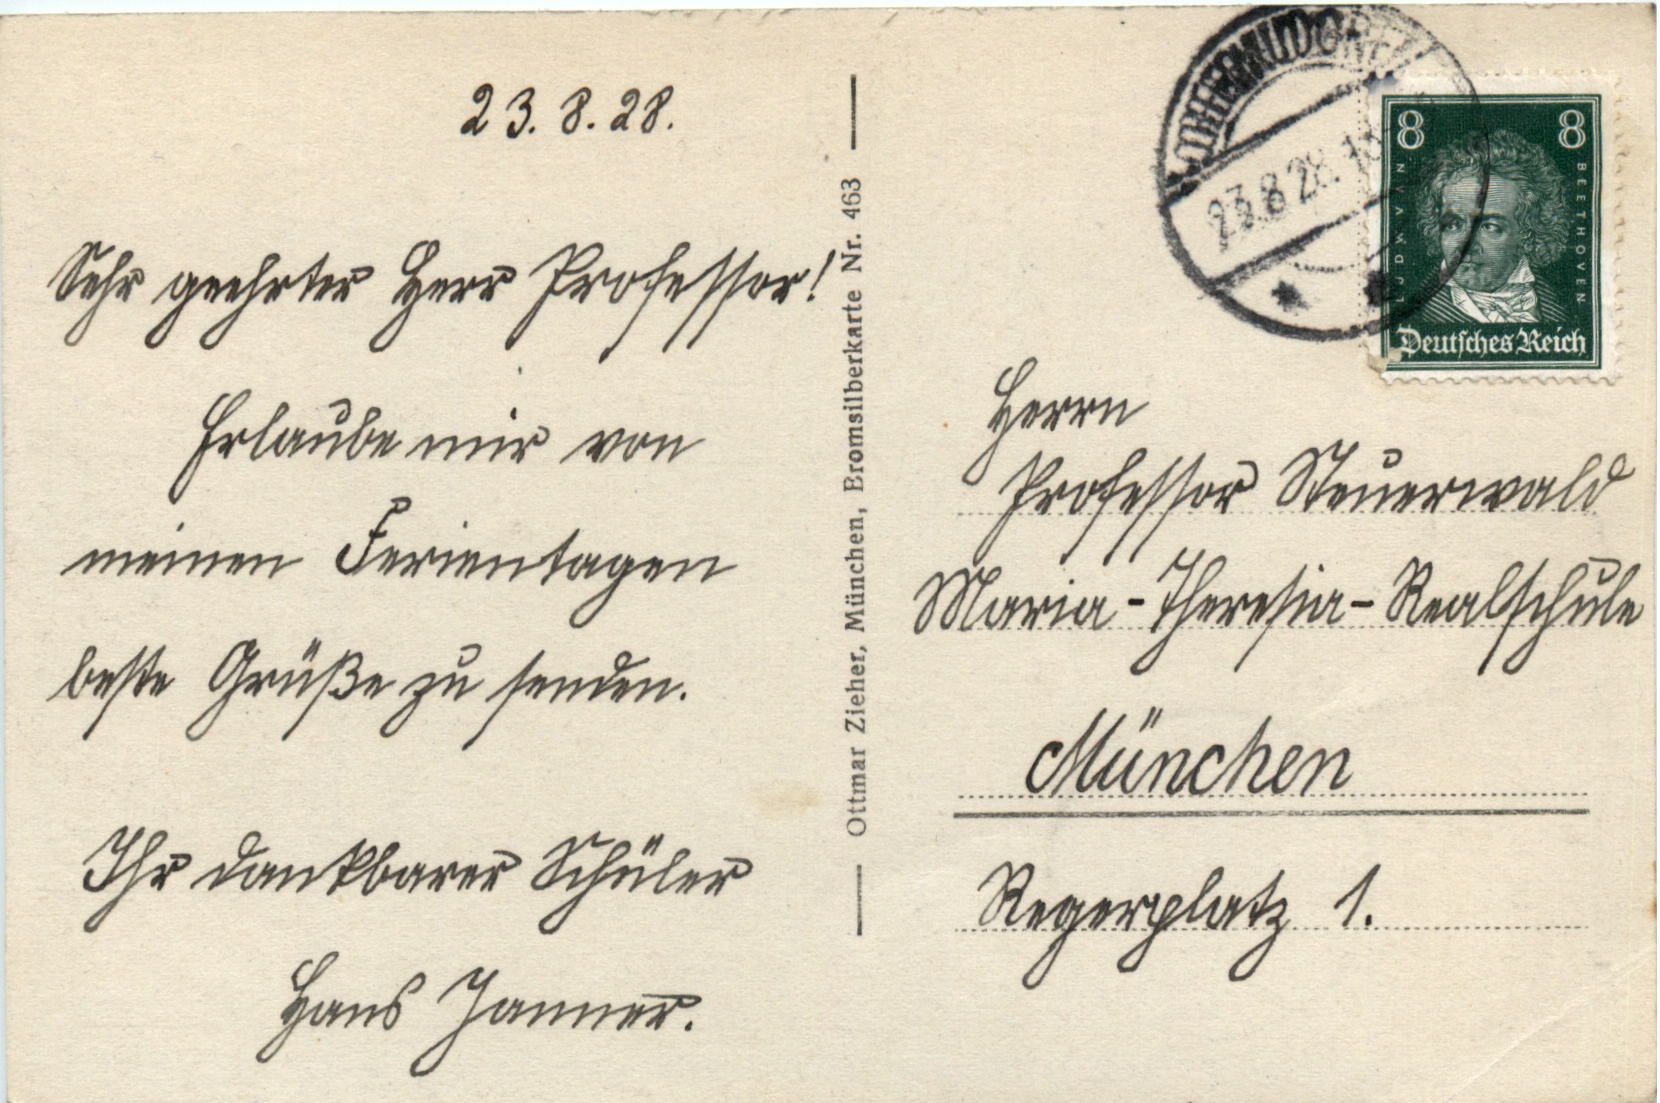 23. 8. 28.
Sehr geehrter Herr Professor!
Erlaube mir von
meinen Ferientagen
beste Grüße zu senden.
Ihr dankbarer Schüler
Hans Janner.
Ottmar Zieher, München, Bromsilberkarte Nr. 463
23.8.28.
8 8
LUDW. VAN
BEETHOVEN
Deutsches Reich
Herrn
Professor Steuerwald
Maria-Theresia-Realschule
München
Regerplatz 1.